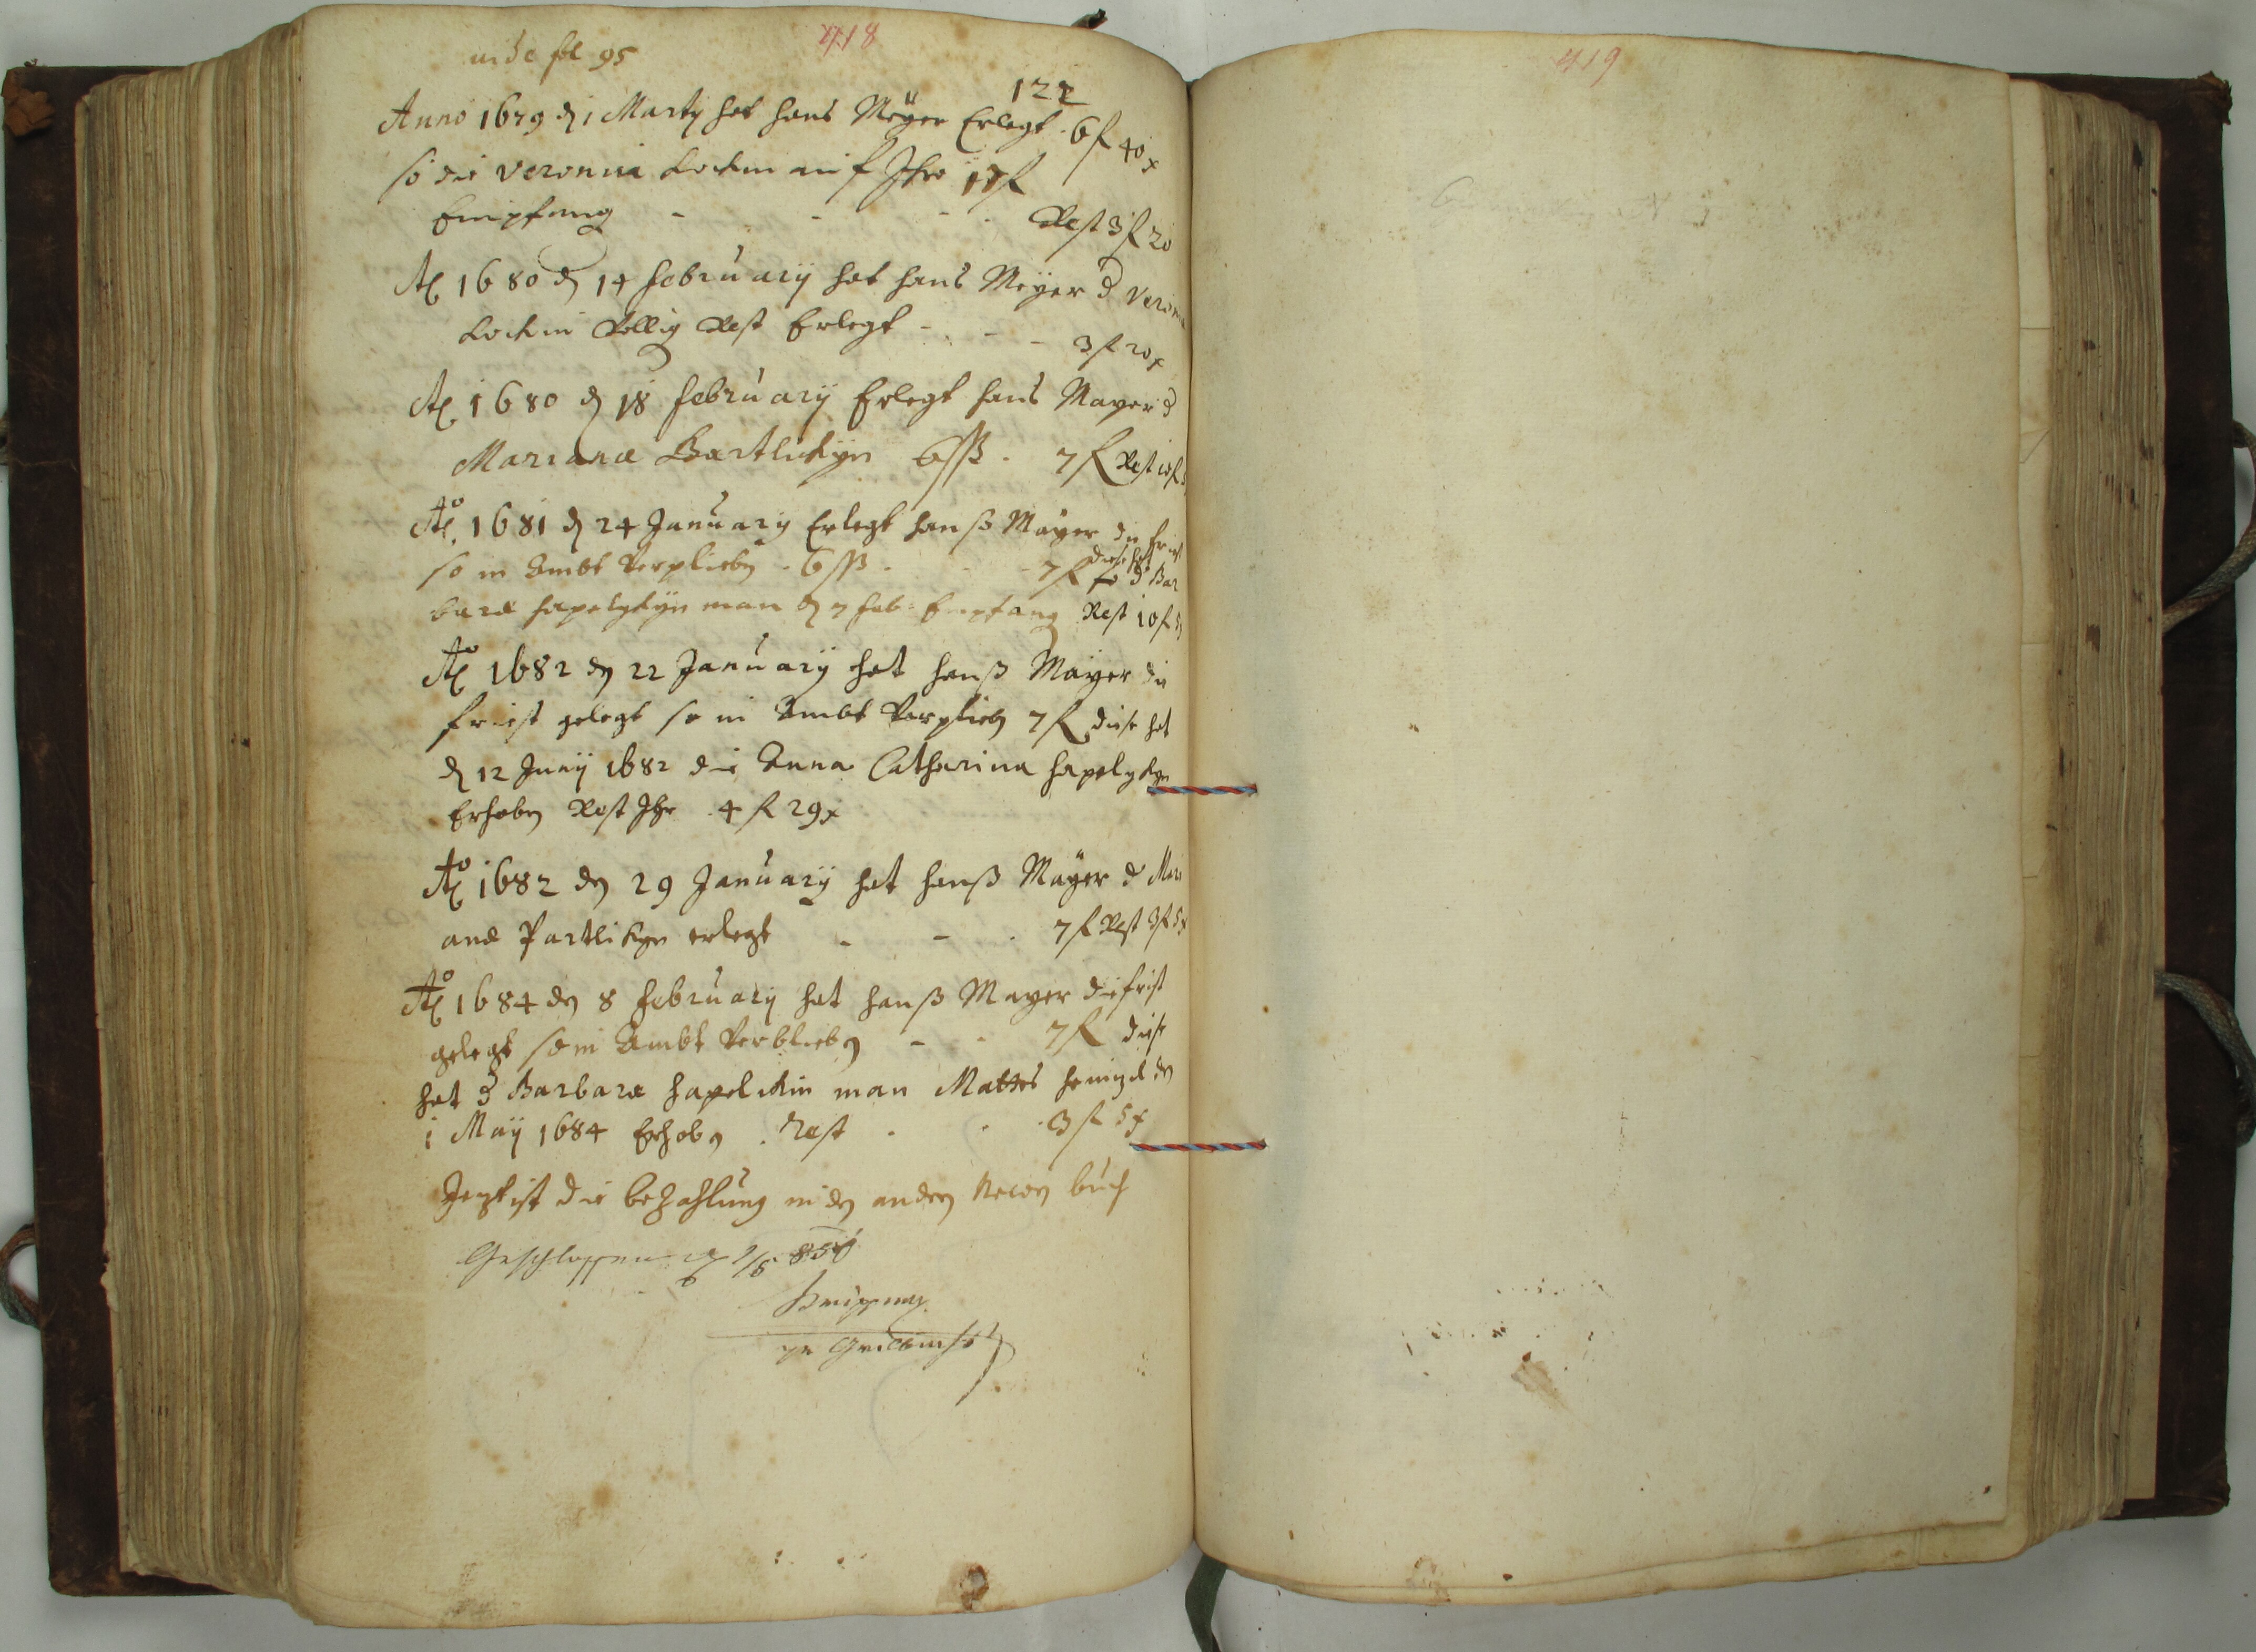 vide fol 95
418
122
Anno 1679 dz 1 Marty hat hans Meÿer Erlegt . 6 f 40 x
so die veronica Lockin auf Ihre 17 f
Empfang - - - - Rest 3 f 20
Ao 1680 dz 14 februarÿ hat hans Meÿer d Veron
Lockin Völlig Rest Erlegt - - - 3 f 20 x
Ao 1680 dz 18 februarÿ Erlegt hans Mayer d
Mariana Bartlickÿn 6 ß . 7 f Rest 10 f
Ao 1681 dz 24 Januarÿ Erlegt hanß Mayer die frist
so in Ambt Verplieben . 6 ß . - - 7 f so d Bar
diese hat
baræ hapelykÿn man dz 7 feb: Empfang Rest 10 f 5
Ao 1682 dz 22 Januarÿ hat hanß Mayer die
friest gelegt so in Ambt Verplieben 7 f diese hat
dz 12 Junÿ 1682 die Anna Catharina hapelykyn
Erhoben Rest Ihr . 4 f 29 x
Ao 1682 den 29 Januarÿ hat hanß Mayer d Mari
anæ Partlikyn erlegt - - - 7 f Rest 3 f 5 x
Ao 1684 den 8 februarÿ hat hanß Mayer die frist
gelegt so in Ambt Verblieben - - 7 f diese
hat d Barbaræ hapelickin man Mattes den
1 Maÿ 1684 Erhoben . Rest . . . 3 f 5 x
Jezt ist die bezahlung in den andern Neuen buch
Geschlossen
419